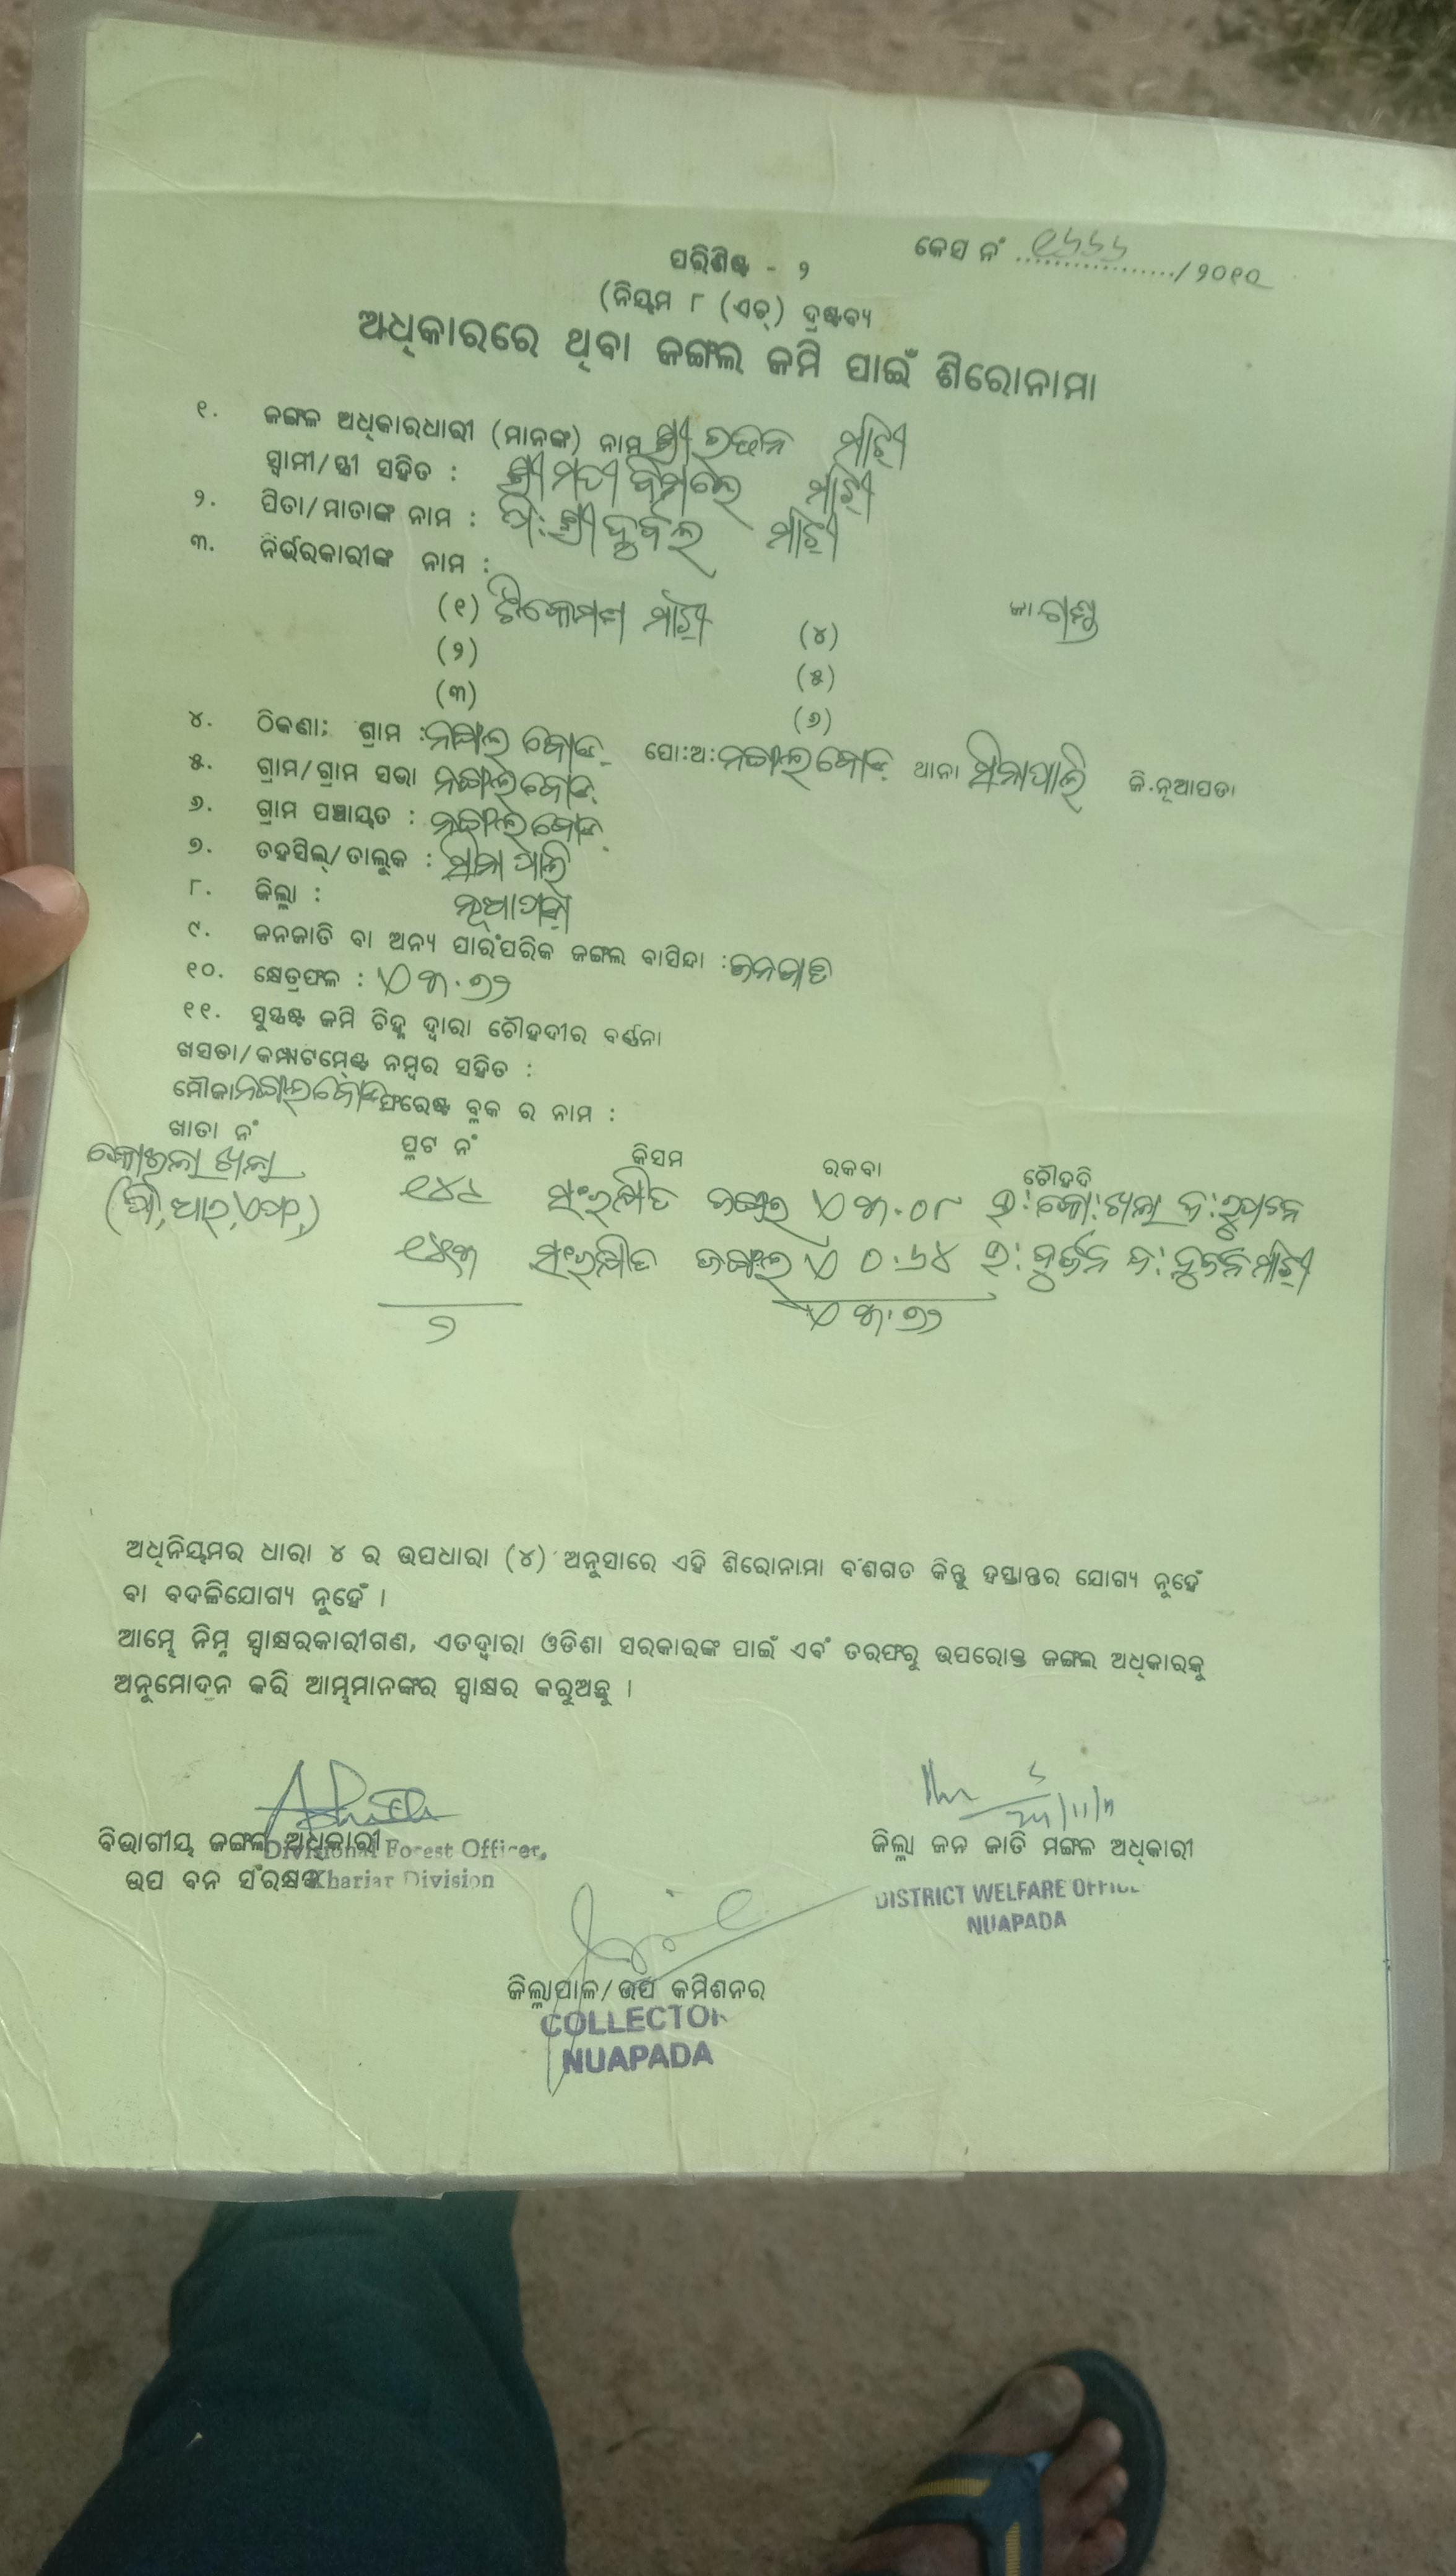 କେସ ନଂ ୧୬୬୬ /୨୦୧୦
ପରିଶିଷ୍ଟ - ୨
(ନିୟମ ୮ (ଏଚ୍) ଦ୍ରଷ୍ଟବ୍ୟ
ଅଧିକାରରେ ଥିବା ଜଙ୍ଗଲ ଜମି ପାଇଁ ଶିରୋନାମା
୧. ଜଙ୍ଗଳ ଅଧିକାରଧାରୀ (ମାନଙ୍କ) ନାମ ଶ୍ରୀ ମାଝୀ
ସ୍ୱାମୀ/ସ୍ତ୍ରୀ ସହିତ : ଶ୍ରୀମତୀ ବିମଲେ ମାଝୀ
୨. ପିତା/ମାତାଙ୍କ ନାମ : ପି: ଶ୍ରୀ ଦୁର୍ବଲ ମାଝୀ
୩. ନିର୍ଭରକାରୀଙ୍କ ନାମ :
(୧) ଟିକେମଣ ମାଝୀ (୪) ଜା: ଗଣ୍ଡ
(୨) (୫)
(୩) (୬)
୪. ଠିକଣା; ଗ୍ରାମ : ନଙ୍ଗଲବୋଡ଼ ପୋ:ଅ: ନଙ୍ଗଲବୋଡ଼ ଥାନା ସିନାପାଲି ଜି.ନୂଆପଡା
୫. ଗ୍ରାମ/ଗ୍ରାମ ସଭା ନଙ୍ଗଲବୋଡ଼
୬. ଗ୍ରାମ ପଞ୍ଚାୟତ : ନଙ୍ଗଲବୋଡ଼
୭. ତହସିଲ୍/ତାଲୁକ : ସିନାପାଲି
୮. ଜିଲ୍ଲା : ନୂଆପଡ଼ା
୯. ଜନଜାତି ବା ଅନ୍ୟ ପାରଂପରିକ ଜଙ୍ଗଲ ବାସିନ୍ଦା : ଜନଜାତି
୧୦. କ୍ଷେତ୍ରଫଳ : ଏ ୩.୭୨
୧୧. ସୁସ୍ପଷ୍ଟ ଜମି ଚିହ୍ନ ଦ୍ୱାରା ଚୌହଦୀର ବର୍ଣ୍ଣନା
ଖସଡା/କମ୍ପାଟମେଣ୍ଟ ନମ୍ବର ସହିତ :
ମୌଜା ନଙ୍ଗଲବୋଡ଼ ଫରେଷ୍ଟ ବ୍ଳକ ର ନାମ :
ଖାତା ନଂ ପ୍ଳଟ ନଂ କିସମ ରକବା ଚୌହଦି
ଖଲା ସଂରକ୍ଷିତ ଜଙ୍ଗଲ ଏ ୩.୦୮
(ପି,ଆର,ଏଫ,) ସଂରକ୍ଷିତ ଜଙ୍ଗଲ ଏ ୦.୬୪ ଉ: ଦୁର୍ଜନ ଦ: ଦୁର୍ଜନ ମାଝୀ
୨ ଏ ୩.୭୨
ଅଧିନିୟମର ଧାରା ୪ ର ଉପଧାରା (୪) ଅନୁସାରେ ଏହି ଶିରୋନାମା ବଂଶଗତ କିନ୍ତୁ ହସ୍ତାନ୍ତର ଯୋଗ୍ୟ ନୁହେଁ
ବା ବଦଳିଯୋଗ୍ୟ ନୁହେଁ ।
ଆମ୍ଭେ ନିମ୍ନ ସ୍ୱାକ୍ଷରକାରୀଗଣ, ଏତଦ୍ୱାରା ଓଡିଶା ସରକାରଙ୍କ ପାଇଁ ଏବଂ ତରଫରୁ ଉପରୋକ୍ତ ଜଙ୍ଗଲ ଅଧିକାରକୁ
ଅନୁମୋଦନ କରି ଆମ୍ଭମାନଙ୍କର ସ୍ୱାକ୍ଷର କରୁଅଛୁ ।
ବିଭାଗୀୟ ଜଙ୍ଗଲ ଅଧିକାରୀ
Divisional Forest Officer,
ଉପ ବନ ସଂରକ୍ଷକ
Khariar Division
ଜିଲ୍ଲା ଜନ ଜାତି ମଙ୍ଗଳ ଅଧିକାରୀ
DISTRICT WELFARE OFFICE
NUAPADA
ଜିଲ୍ଲାପାଳ/ଉପ କମିଶନର
COLLECTOR
NUAPADA